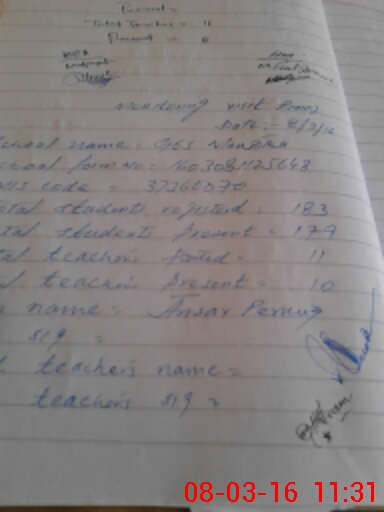 Present =
Total Teacher = 11
Present = 6
MEA
Monitoring visit Proof
Date:- 8/3/16
chool name: GES
chool form No: 1603081125643
code = 37260070
otal students rejisterd = 183
tal students present = 179
tal teachers posted = 11
l teachers present = 10
name = Ansar
sig =
teachers name =
teachers sig =
08-03-16 11:31